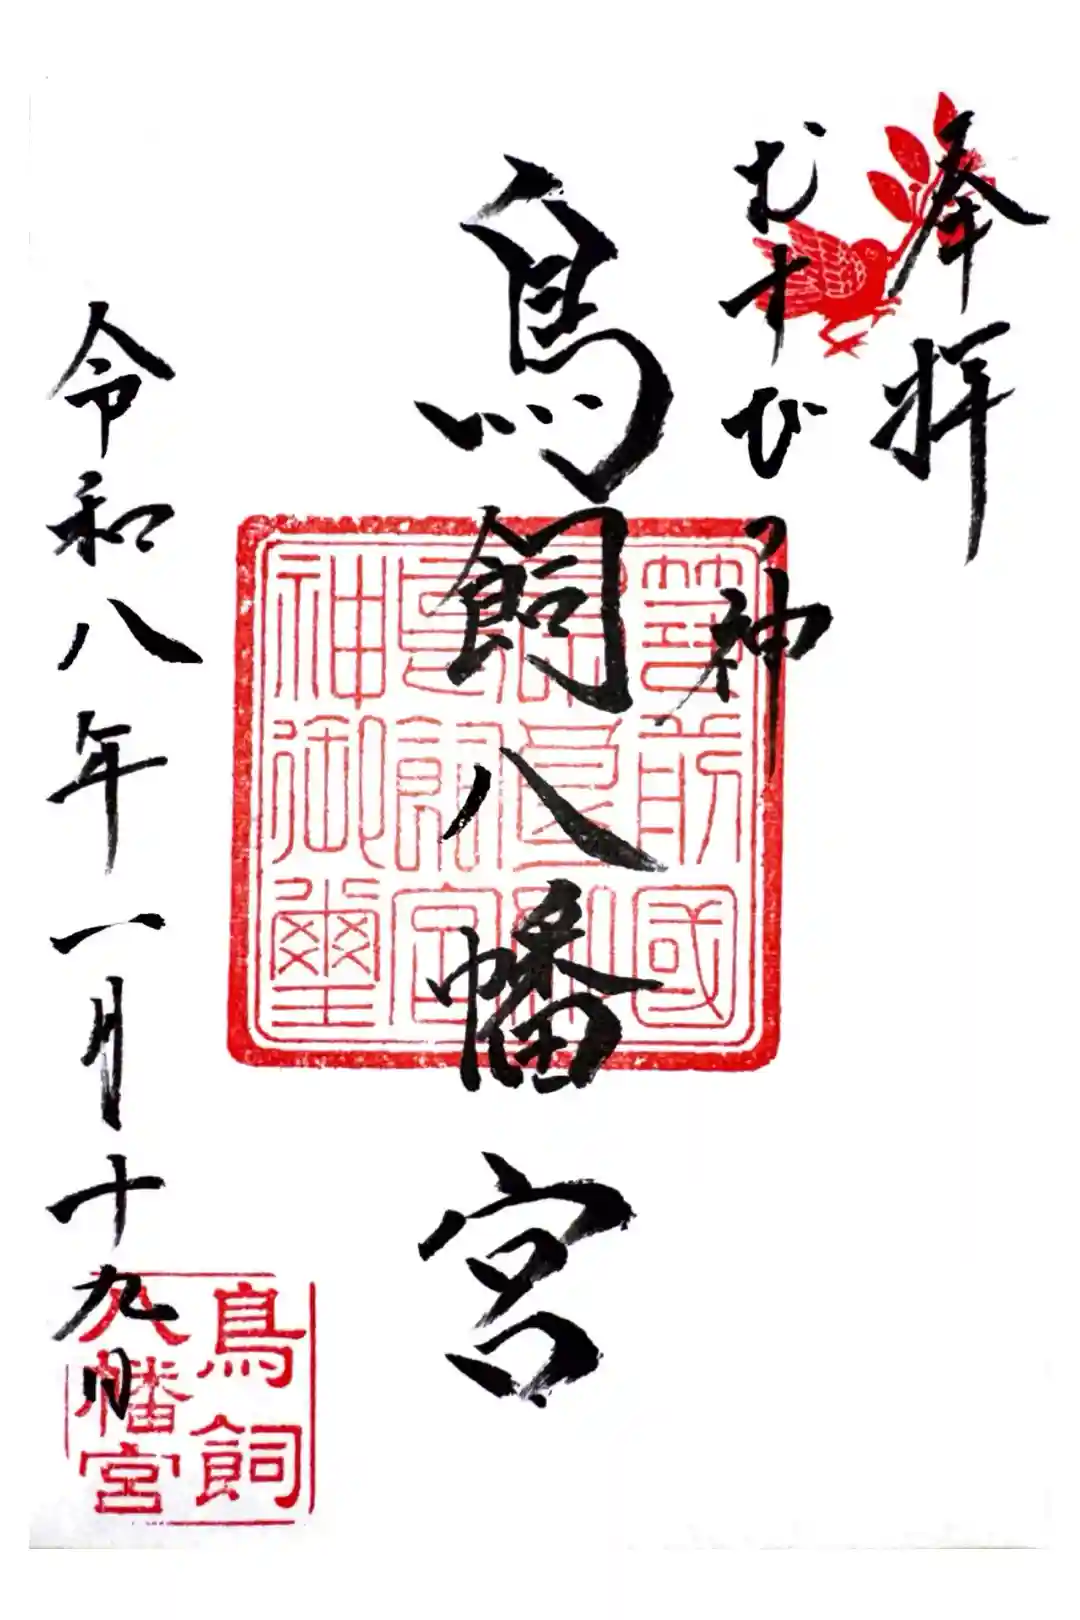 奉拝
むすびの神
鳥飼八幡宮
令和八年一月十九日
筑前國
鳥飼宮
神御璽
鳥飼
八幡宮